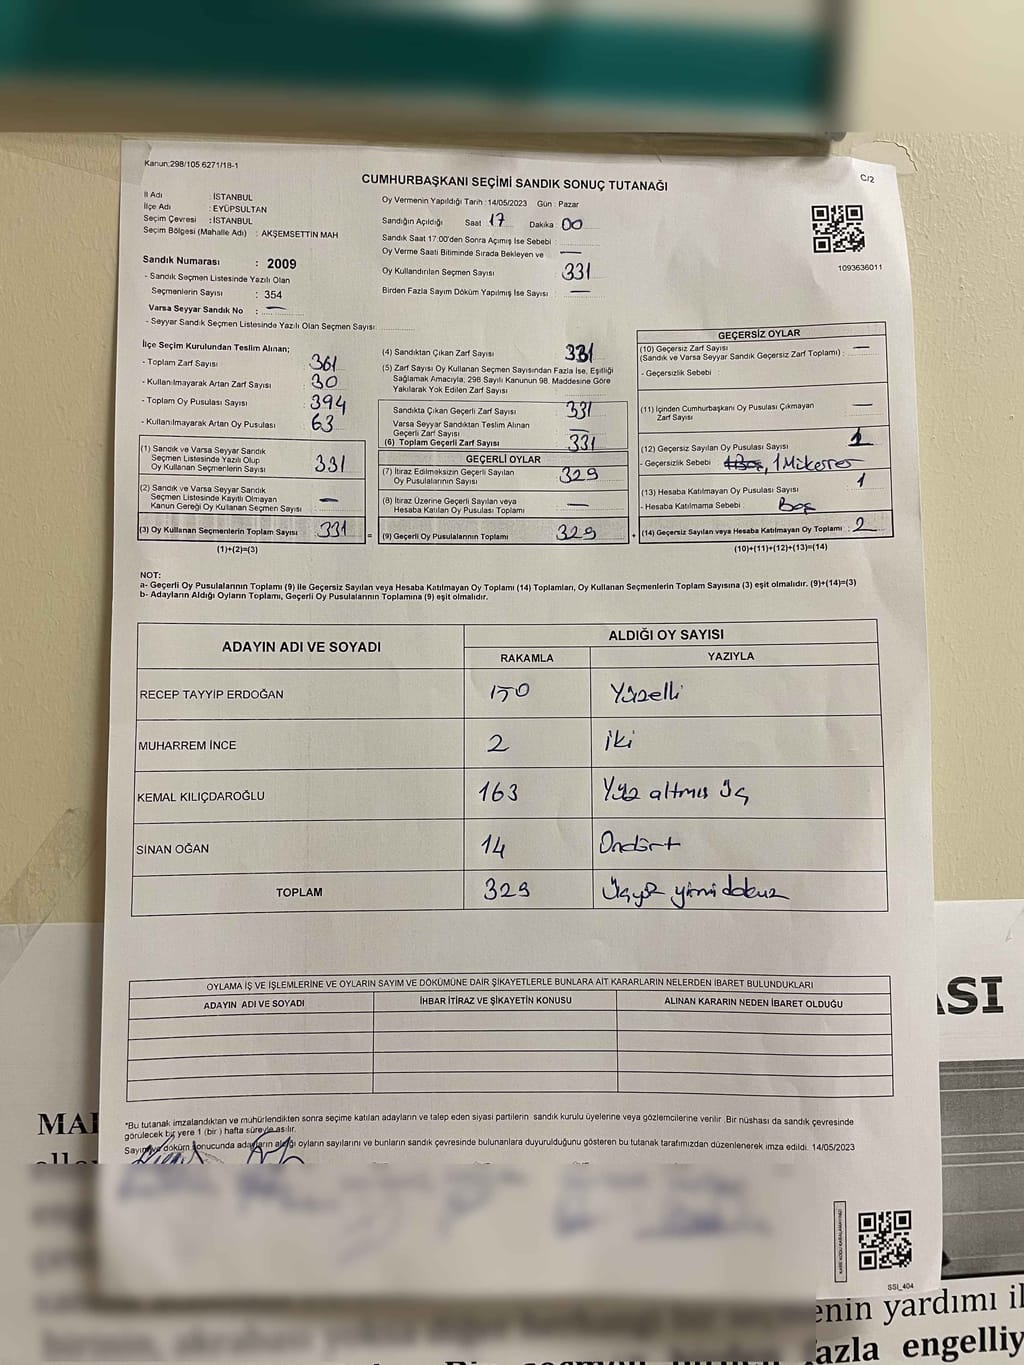 Kanun;298/105 6271/18-1
C/2
CUMHURBAŞKANI SEÇİMİ SANDIK SONUÇ TUTANAĞI
İl Adı : İSTANBUL
İlçe Adı : EYÜPSULTAN
Seçim Çevresi : İSTANBUL
Seçim Bölgesi (Mahalle Adı) : AKŞEMSETTİN MAH
Sandık Numarası : 2009
- Sandık Seçmen Listesinde Yazılı Olan
Seçmenlerin Sayısı : 354
Varsa Seyyar Sandık No : —
- Seyyar Sandık Seçmen Listesinde Yazılı Olan Seçmen Sayısı:
Oy Vermenin Yapıldığı Tarih :14/05/2023 Gün : Pazar
Sandığın Açıldığı Saat 17 Dakika : 00
Sandık Saat 17:00'den Sonra Açımış İse Sebebi :
Oy Verme Saati Bitiminde Sırada Bekleyen ve —
Oy Kullandırılan Seçmen Sayısı 331
Birden Fazla Sayım Döküm Yapılmış İse Sayısı : —
1093636011
İlçe Seçim Kurulundan Teslim Alınan;
- Toplam Zarf Sayısı : 361
- Kullanılmayarak Artan Zarf Sayısı : 30
- Toplam Oy Pusulası Sayısı : 394
- Kullanılmayarak Artan Oy Pusulası : 63
(1) Sandık ve Varsa Seyyar Sandık
Seçmen Listesinde Yazılı Olup
Oy Kullanan Seçmenlerin Sayısı : 331
(2) Sandık ve Varsa Seyyar Sandık
Seçmen Listesinde Kayıtlı Olmayan
Kanun Gereği Oy Kullanan Seçmen Sayısı : —
(3) Oy Kullanan Seçmenlerin Toplam Sayısı : 331
(1)+(2)=(3)
(4) Sandıktan Çıkan Zarf Sayısı : 331
(5) Zarf Sayısı Oy Kullanan Seçmen Sayısından Fazla İse, Eşitliği
Sağlamak Amacıyla, 298 Sayılı Kanunun 98. Maddesine Göre
Yakılarak Yok Edilen Zarf Sayısı :
Sandıkta Çıkan Geçerli Zarf Sayısı : 331
Varsa Seyyar Sandıktan Teslim Alınan
Geçerli Zarf Sayısı : —
(6) Toplam Geçerli Zarf Sayısı : 331
GEÇERLİ OYLAR
(7) İtiraz Edilmeksizin Geçerli Sayılan
Oy Pusulalarının Sayısı : 329
(8) İtiraz Üzerine Geçerli Sayılan veya
Hesaba Katılan Oy Pusulası Toplamı : —
= (9) Geçerli Oy Pusulalarının Toplamı : 329
GEÇERSİZ OYLAR
(10) Geçersiz Zarf Sayısı
(Sandık ve Varsa Seyyar Sandık Geçersiz Zarf Toplamı) : —
- Geçersizlik Sebebi :
(11) İçinden Cumhurbaşkanı Oy Pusulası Çıkmayan
Zarf Sayısı : —
(12) Geçersiz Sayılan Oy Pusulası Sayısı : 1
- Geçersizlik Sebebi : 1 Boş, 1 Mükerrer
(13) Hesaba Katılmayan Oy Pusulası Sayısı : 1
- Hesaba Katılmama Sebebi : Boş
+ (14) Geçersiz Sayılan veya Hesaba Katılmayan Oy Toplamı : 2
(10)+(11)+(12)+(13)=(14)
NOT:
a- Geçerli Oy Pusulalarının Toplamı (9) ile Geçersiz Sayılan veya Hesaba Katılmayan Oy Toplamı (14) Toplamları, Oy Kullanan Seçmenlerin Toplam Sayısına (3) eşit olmalıdır. (9)+(14)=(3)
b- Adayların Aldığı Oyların Toplamı, Geçerli Oy Pusulalarının Toplamına (9) eşit olmalıdır.
ADAYIN ADI VE SOYADI ALDIĞI OY SAYISI
RAKAMLA YAZIYLA
RECEP TAYYİP ERDOĞAN 150 Yüzelli
MUHARREM İNCE 2 iki
KEMAL KILIÇDAROĞLU 163 Yüz altmış üç
SİNAN OĞAN 14 Ondört
TOPLAM 329 Üçyüz yirmi dokuz
OYLAMA İŞ VE İŞLEMLERİNE VE OYLARIN SAYIM VE DÖKÜMÜNE DAİR ŞİKAYETLERLE BUNLARA AİT KARARLARIN NELERDEN İBARET BULUNDUKLARI
ADAYIN ADI VE SOYADI İHBAR İTİRAZ VE ŞİKAYETİN KONUSU ALINAN KARARIN NEDEN İBARET OLDUĞU
*Bu tutanak imzalandıktan ve mühürlendikten sonra seçime katılan adayların ve talep eden siyasi partilerin sandık kurulu üyelerine veya gözlemcilerine verilir. Bir nüshası da sandık çevresinde
görülecek bir yere 1 (bir) hafta süreyle asılır.
Sayım ve döküm sonucunda adayların aldığı oyların sayılarını ve bunların sandık çevresinde bulunanlara duyurulduğunu gösteren bu tutanak tarafımızdan düzenlenerek imza edildi. 14/05/2023
SSİ_404
ASI
MAH
enin yardımı il
fazla engelliy